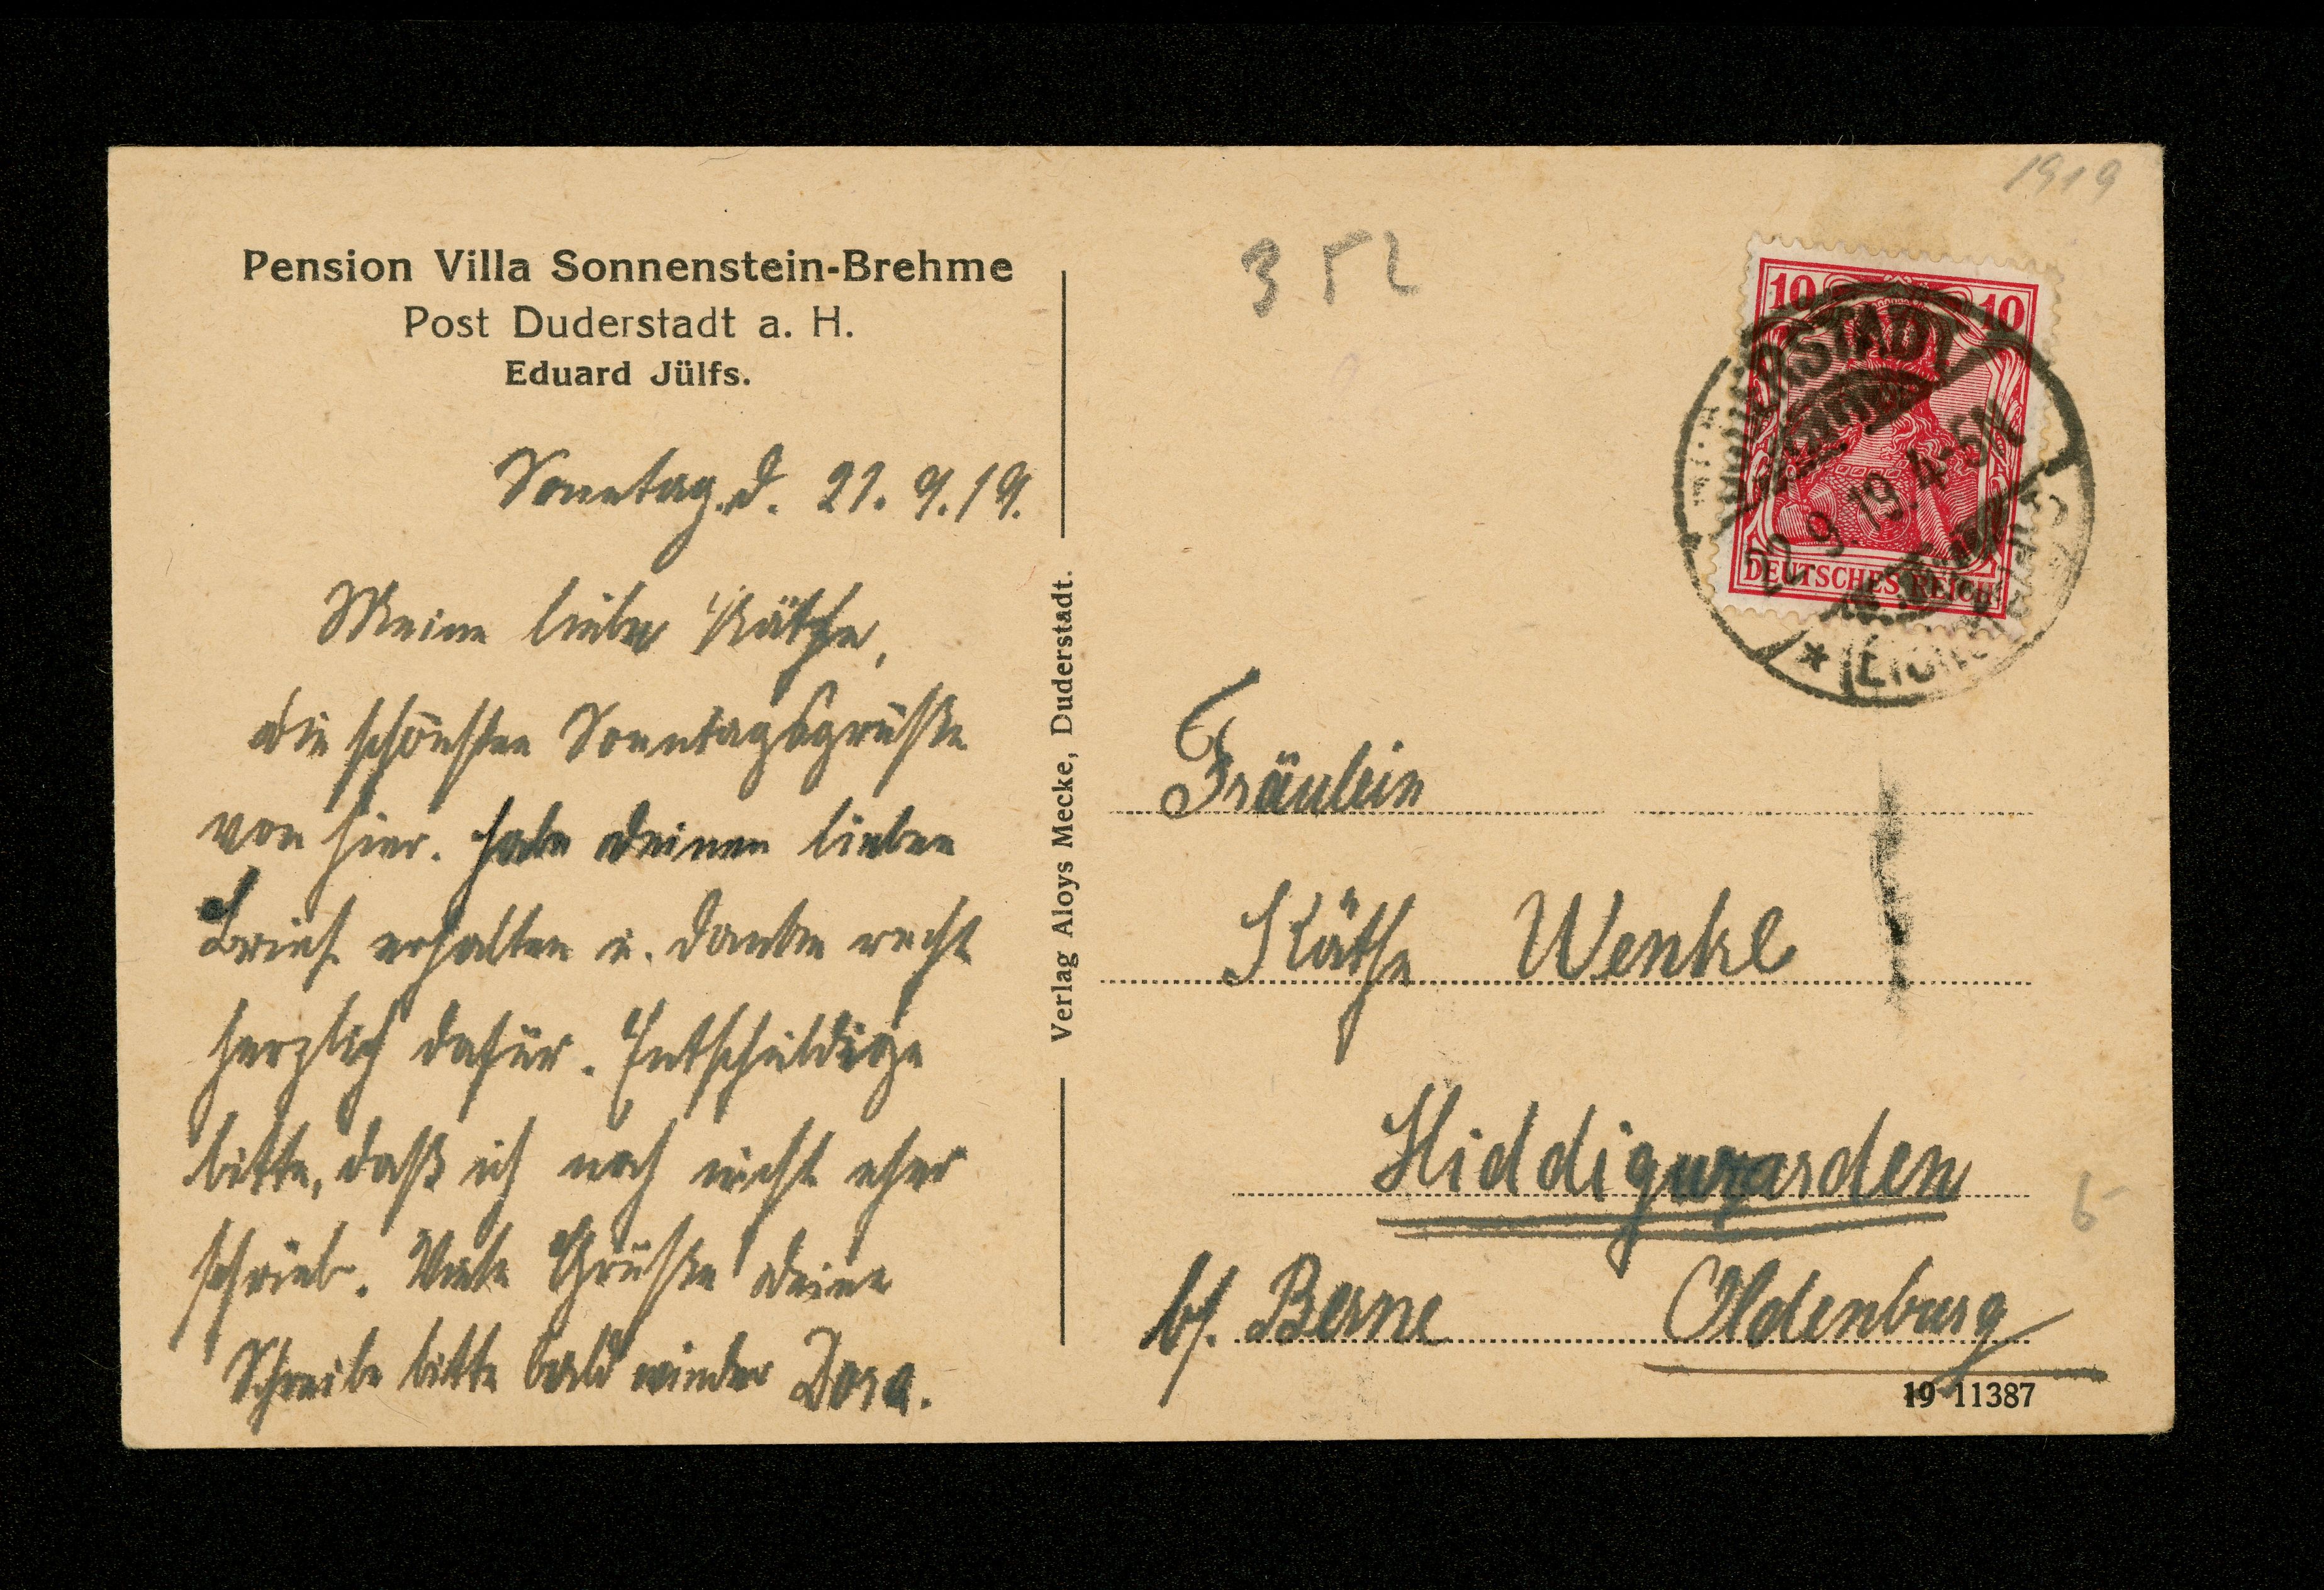 Pension Villa Sonnenstein-Brehme
Post Duderstadt a. H.
Eduard Jülfs.
Sonntag. d. 21. 9. 19.
Meine liebe Käthe,
die schönsten Sonntagsgrüße
von hier. habe deinen lieben
Brief erhalten u. danke recht
herzlich dafür. Entschuldige
bitte, daß ich noch nicht eher
schrieb. Viele Grüße deine
Schreibe bitte bald wieder Dora.
Verlag Aloys Mecke, Duderstadt.
1919
3 52
10 10
DEUTSCHES REICH
DUDERSTADT
22 9. 19. 4-5N
* (EICHSFELD)
Fräulein
Käthe Wenke
Hiddigwarden
b/. Berne Oldenburg
6
19 11387